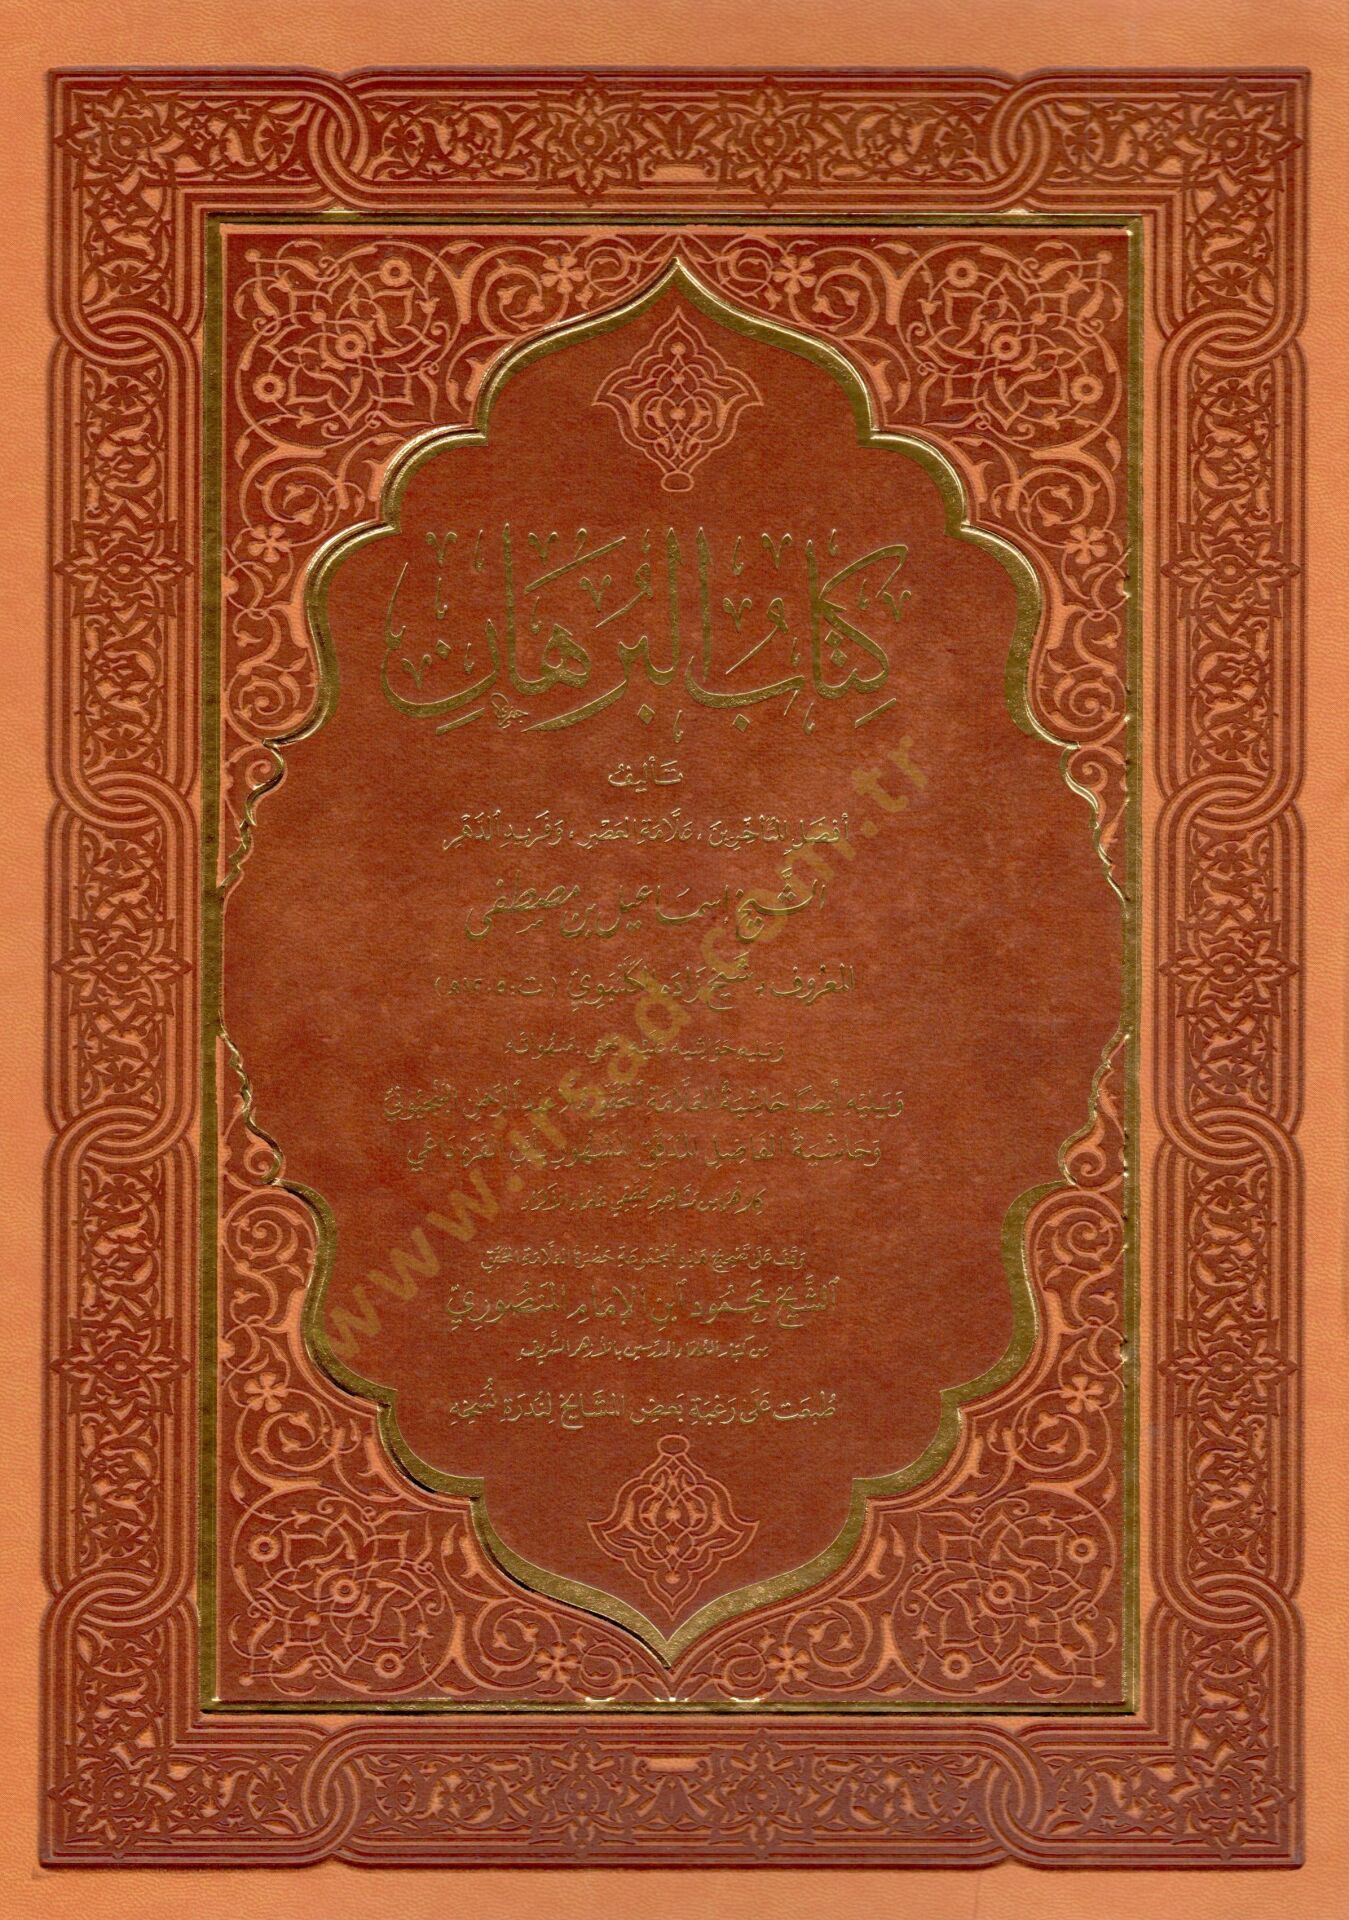 كِتَابُ الْبُرْهَانِ
تَأْليفُ
أفضَلِ المتَأخِّرِينَ، عَلَّامَةِ العَصْرِ، وَفَرِيدِ الدَّهْرِ
الشَّيخِ إسمَاعيل بن مصطفى
المعرُوف بـ شَيخ زَادَه الكَلَنْبَوِيّ (ت: ١٢٠٥هـ)
وَيَليه حَوَاشِيه
وَيَليه أيضًا حَاشيَةُ العَلَّامَةِ عَبد الرَّحمن البَنْجِيُونيِّ
وَحَاشِيَةُ الفَاضِلِ المدَقِّق المشهُور بابن القَرَه دَاغي
وَقَفَ عَلَى تَصْحِيحِ هَذِهِ المجْمُوعَةِ حَضْرَةُ العَلَّامَةِ المحَقِّقِ
الشَّيْخ مَحمُود ابن الإمَام المَنْصُورِيّ
مِن كبَار العُلمَاء والمدَرِّسِين بالأزهَر الشَّريف
طُبعَت عَلَى رَغْبَةِ بَعضِ المشَايخ لِنُدرَةِ نُسَخِهِ
www.irsad.com.tr